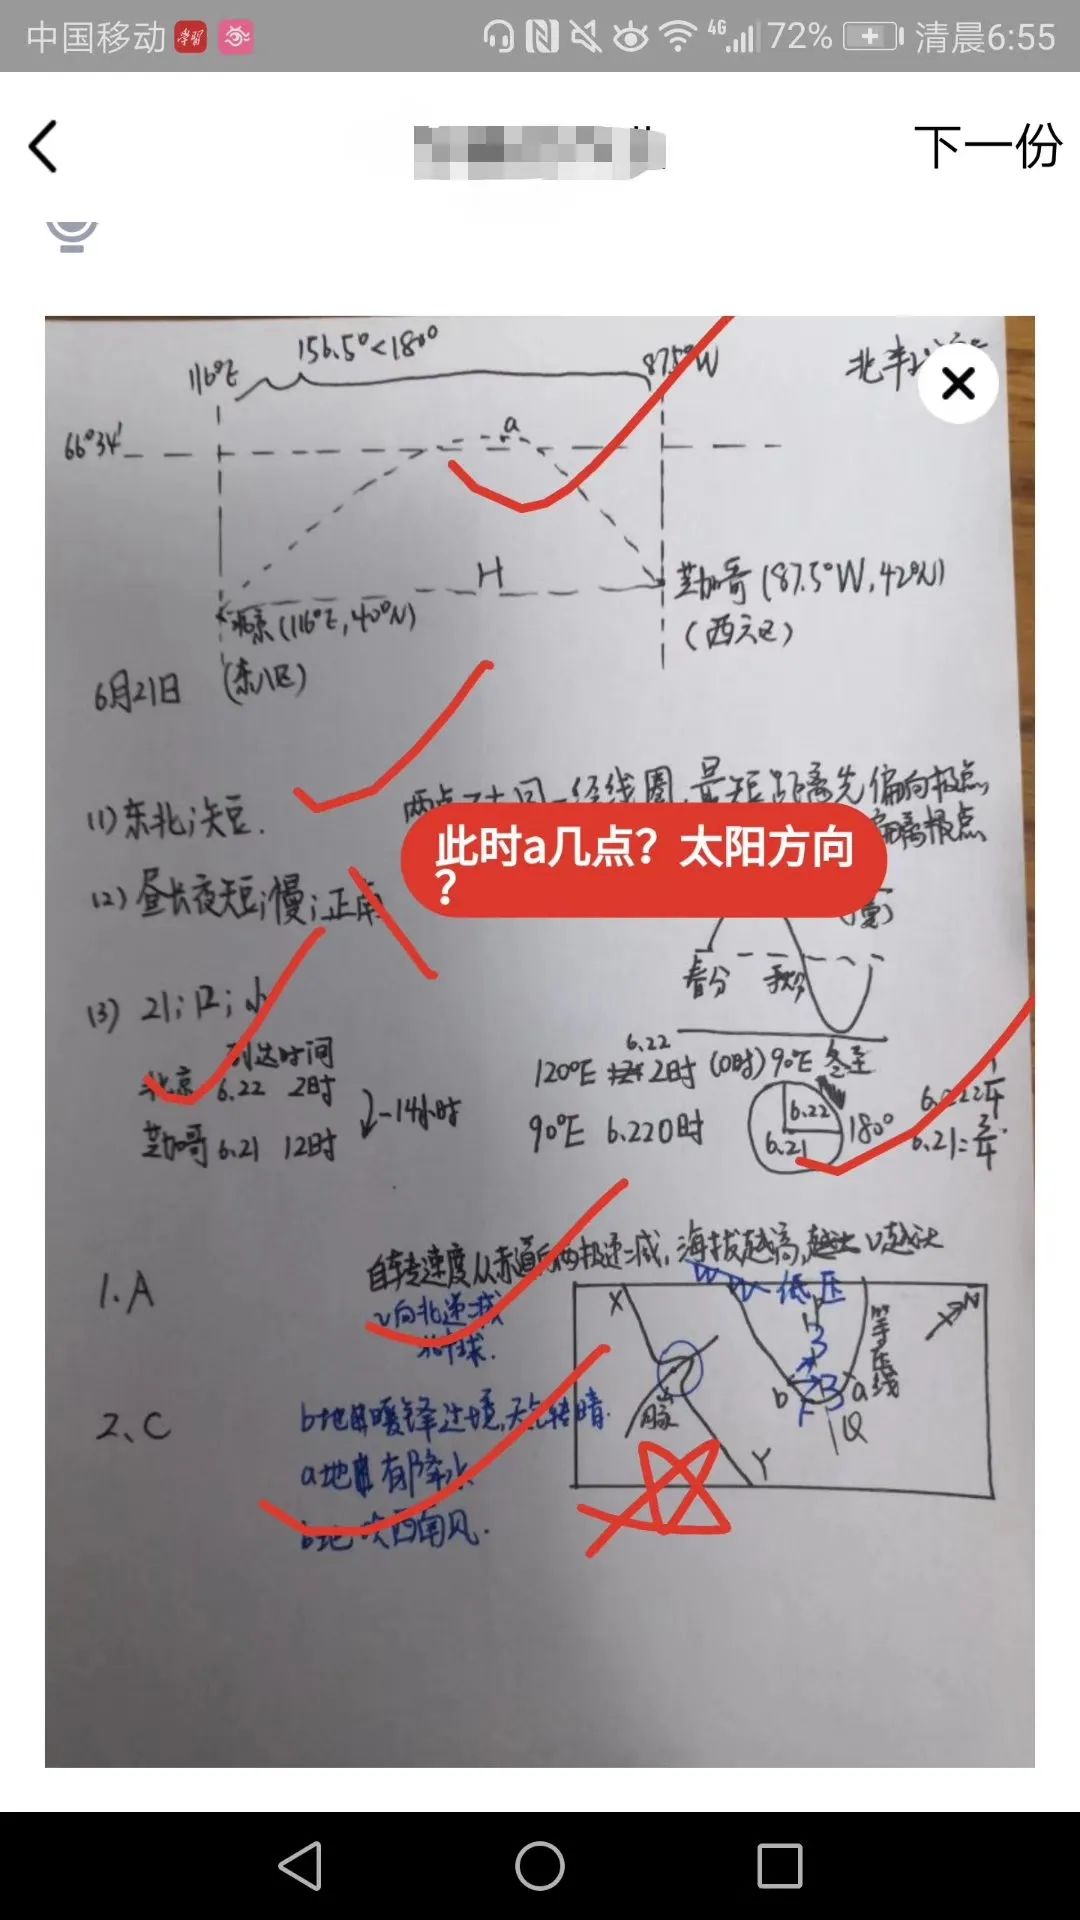 中国移动 学习 4G 72% 清晨6:55
下一份
116°E 156.5°<180° 87.5°W 北半
66°34′ a
H
芝加哥(87.5°W,42°N)
(西六区)
北京(116°E,40°N)
(东八区)
6月21日
(1)东北;短.
最短距离先偏向极点,
偏离极点
此时a几点?太阳方向
?
(2)昼长夜短;慢;正南
春分 秋分
(3) 21;12;小
到达时间
北京 6.22 2时
芝加哥 6.21 12时
-14小时
6.22
120°E 2时 (0时)90°E 冬至
90°E 6.22 0时
6.22
6.21
180°
6.21=3/4
自转速度从赤道向两极递减,海拔越高,v越大
1.A
v向北递减
北半球.
X 低压 等压线 N
山脉 b a Q Y F
2、C
b地暖锋过境,天气转晴.
a地有降水
b地吹西南风.